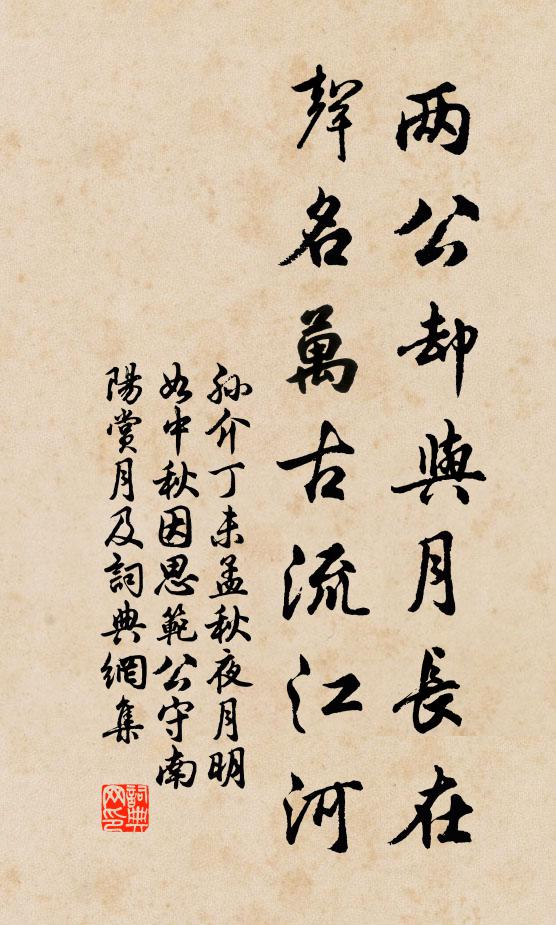 两公却與月長在
聲名萬古流江河
孫介丁未孟秋夜月明
如中秋因思範公守南
陽賞月及詞典網集
詞典网印